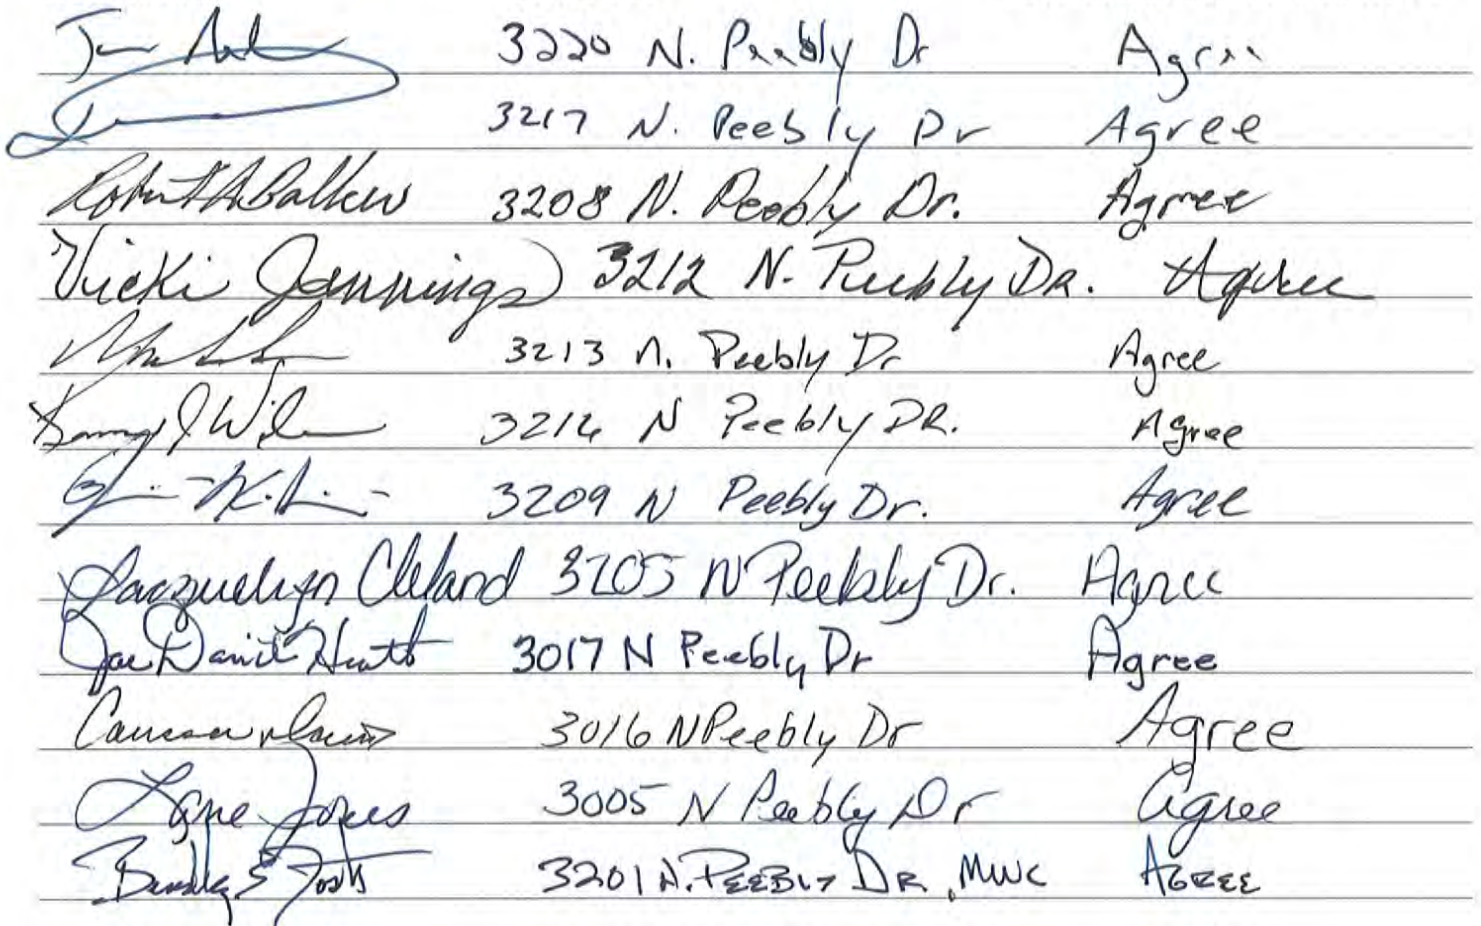 3220 N. Peebly Dr Agree
3217 N. Peebly Dr Agree
Robert A. Balkew 3208 N. Peebly Dr. Agree
Vicki Jennings 3212 N. Peebly DR. Agree
3213 N. Peebly Dr Agree
3214 N Peebly DR. Agree
3209 N Peebly Dr. Agree
Jacquelyn Cleland 3205 N Peebly Dr. Agree
Joe David Heath 3017 N Peebly Dr Agree
3016 N Peebly Dr Agree
Layne Jones 3005 N Peebly Dr agree
3201 N. PEEBLY DR, MWC AGREE